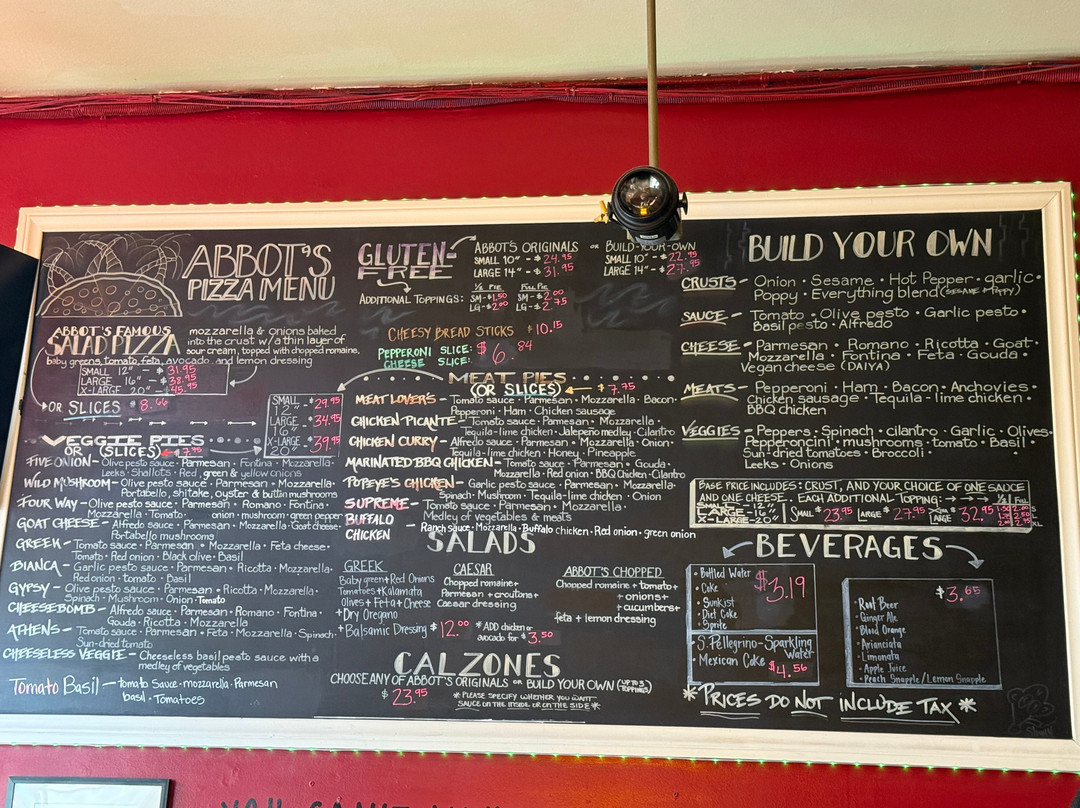 ABBOT'S
PIZZA MENU
ABBOT'S FAMOUS
SALAD PIZZA
mozzarella & onions baked
into the crust w/a thin layer of
sour cream, topped with chopped romaine,
baby greens, tomato, feta, avocado and lemon dressing
SMALL 12" - $31.95
LARGE 16" - $38.95
X-LARGE 20" - $45.95
OR SLICES - $8.66
VEGGIE PIES
OR (SLICES) 7.75
SMALL 12" - $29.95
LARGE 16" - $34.95
X-LARGE 20" - $39.95
FIVE ONION - Olive pesto sauce · Parmesan · Fontina · Mozzarella ·
Leeks · Shallots · Red, green & yellow onions
WILD MUSHROOM - Olive pesto sauce · Parmesan · Mozzarella ·
Portabello, shitake, oyster & buttin mushrooms
FOUR WAY - Olive pesto sauce · Parmesan · Romano · Fontina ·
Mozzarella · Tomato · onion · mushroom · green pepper
GOAT CHEESE - Alfredo sauce · Parmesan · Mozzarella · Goat cheese
Portabello mushrooms
GREEK - Tomato sauce · Parmesan · Mozzarella · Feta cheese ·
Tomato · Red onion · Black olive · Basil
BIANCA - Garlic pesto sauce · Parmesan · Ricotta · Mozzarella ·
Red onion · tomato · Basil
GYPSY - Olive pesto sauce · Parmesan · Ricotta · Mozzarella ·
Spinach · Mushroom · Onion · Tomato
CHEESEBOMB - Alfredo sauce · Parmesan · Romano · Fontina ·
Gouda · Ricotta · Mozzarella
ATHENS - Tomato sauce · Parmesan · Feta · Mozzarella · Spinach ·
Sun-dried tomato
CHEESELESS VEGGIE - Cheeseless basil pesto sauce with a
medley of vegetables
Tomato Basil - tomato Sauce · mozzarella · Parmesan
basil · Tomatoes
GLUTEN-
FREE
ABBOT'S ORIGINALS
SMALL 10" - $24.95
LARGE 14" - $31.95
OR BUILD-YOUR-OWN
SMALL 10" - $22.95
LARGE 14" - $27.95
ADDITIONAL TOPPINGS:
½ PIE
SM - $1.50
LG - $2.00
FULL PIE
SM - $2.00
LG - $2.75
CHEESY BREAD STICKS $10.15
PEPPERONI SLICE:
CHEESE SLICE:
$6.84
MEAT PIES
(OR SLICES) $7.75
MEAT LOVER'S - Tomato sauce · Parmesan · Mozzarella · Bacon ·
Pepperoni · Ham · Chicken sausage
CHICKEN PICANTE - Tomato sauce · Parmesan · Mozzarella ·
Tequila-lime chicken · Jalepeño medley · Cilantro
CHICKEN CURRY - Alfredo sauce · Parmesan · Mozzarella · Onion ·
Tequila-lime chicken · Honey · Pineapple
MARINATED BBQ CHICKEN - Tomato sauce · Parmesan · Gouda ·
Mozzarella · Red onion · BBQ Chicken · Cilantro
POPEYE'S CHICKEN - Garlic pesto sauce · Parmesan · Mozzarella ·
Spinach · Mushroom · Tequila-lime chicken · Onion
SUPREME - Tomato sauce · Parmesan · Mozzarella ·
Medley of vegetables & meats
BUFFALO
CHICKEN - Ranch Sauce · Mozzarella · Buffalo chicken · Red onion · green onion
SALADS
GREEK
Baby green + Red Onions
Tomatoes + Kalamata
Olives + Feta + Cheese
+ Dry Oregano
+ Balsamic Dressing
CAESAR
Chopped romaine +
Parmesan + croutons +
Caesar dressing
ABBOT'S CHOPPED
Chopped romaine + tomato +
+ onions +
+ cucumbers +
feta + lemon dressing
$12.00 *ADD chicken or
avocado for $3.50
CALZONES
CHOOSE ANY OF ABBOT'S ORIGINALS OR BUILD YOUR OWN (UP TO 3 TOPPINGS)
$23.95
*PLEASE SPECIFY WHETHER YOU WANT
SAUCE ON THE INSIDE OR ON THE SIDE*
BUILD YOUR OWN
CRUSTS - Onion · Sesame · Hot Pepper · garlic ·
Poppy · Everything blend (SESAME & POPPY)
SAUCE - Tomato · Olive pesto · Garlic pesto ·
Basil pesto · Alfredo
CHEESE - Parmesan · Romano · Ricotta · Goat ·
Mozzarella · Fontina · Feta · Gouda ·
Vegan cheese (DAIYA)
MEATS - Pepperoni · Ham · Bacon · Anchovies ·
Chicken sausage · Tequila-lime chicken ·
BBQ chicken
VEGGIES - Peppers · Spinach · cilantro · Garlic · Olives ·
Pepperoncini · mushrooms · tomato · Basil ·
Sun-dried tomatoes · Broccoli ·
Leeks · Onions
BASE PRICE INCLUDES: CRUST, AND YOUR CHOICE OF ONE SAUCE
AND ONE CHEESE. EACH ADDITIONAL TOPPING: ½ FULL
SMALL - 12"
LARGE - 16"
X-LARGE - 20"
SMALL $23.95 LARGE $27.95 X-LARGE 32.95
BEVERAGES
• Bottled Water
• Coke
• Sunkist
• Diet Coke
• Sprite
$3.19
• S. Pellegrino - Sparkling
Water
• Mexican Coke $4.56
$3.65
• Root Beer
• Ginger Ale
• Blood Orange
• Arianciata
• Limonata
• Apple Juice
• Peach Snapple / Lemon Snapple
*PRICES DO NOT INCLUDE TAX*